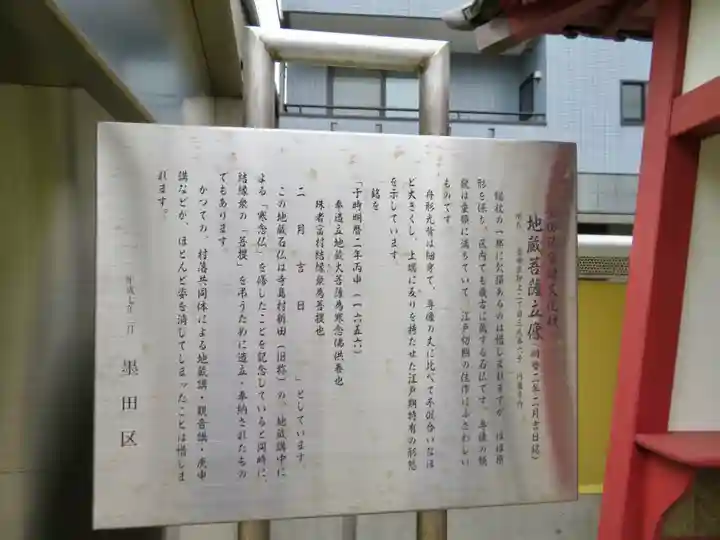 地蔵菩薩立像（明暦二年二月吉日銘）
錫杖の一部に欠損あるのは惜しまれますが、ほぼ原
形を保ち、区内でも最古に属する石仏です。尊像の
は豪張に満ちていて、江戸初期の佳作にふさわしい
ものです。
舟形光背は細身で、尊像の丈に比べて不似合いなほ
ど大きくし、上端に反りを持たせた江戸期特有の形態
を示しています。
銘を
「于時明暦二年丙申（一六五六）
奉造立地蔵大菩薩為寒念佛供養也
殊者當村結縁衆為菩提也
二月吉日　」としています。
この地蔵石仏は寺島村新田（旧称）の、地蔵講中に
よる「寒念仏」を修したことを記念していると同時に、
結縁衆の「菩提」を弔うために造立・奉納されたもの
でもあります。
かつての、村落共同体による地蔵講・観音講・庚申
講などが、ほとんど姿を消してしまったことは惜しま
れます。
墨田区